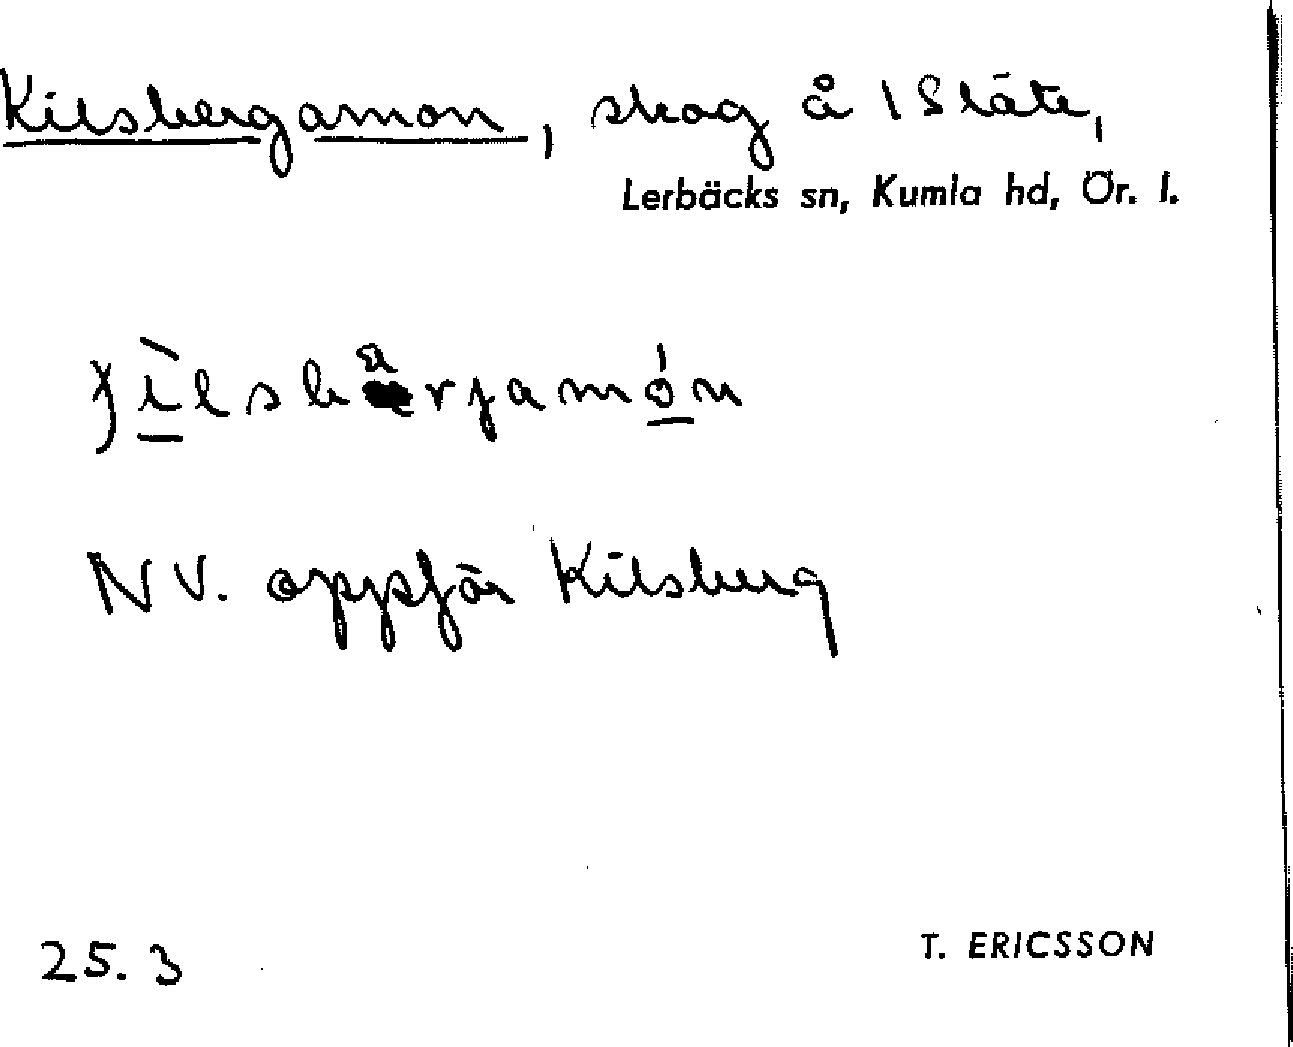 Kilsbergamon, skog å 1 Släte,
Lerbäcks sn, Kumla hd, Ör. l.
NV. oppför Kilsberg
25.3
T. ERICSSON